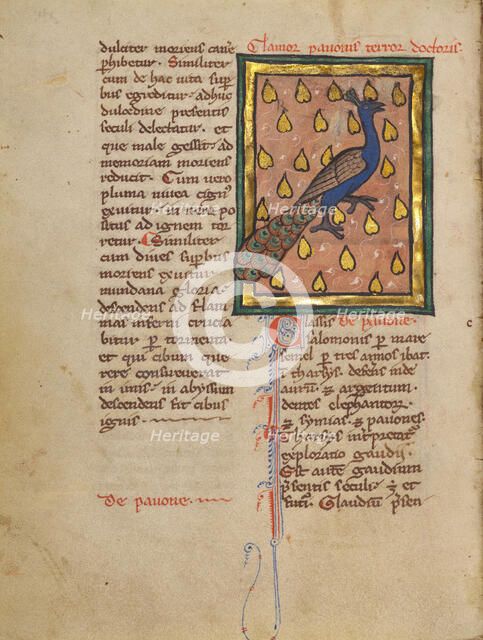 dulciter moriens cane
phibetur. Similiter
cum de hac uita sup
bus egreditur. adhuc
dulcedine presentis
seculi delectatur. et
que male gessit. ad
memoriam moriens
reducit. Cum uero
pluma niuea cignus
exuitur. in ueru po
situs ad ignem tor
retur. Similiter
cum diues supbus
moriens exuitur
mundana gloria
descendens ad flam
mas inferni crucia
bitur p tormenta
et qui cibum que
rere consueuerat
in imis. in abyssum
descendens fit cibus
ignis.
De pauone.
Clamor pauonis terror doctoris.
Classis De pauone.
salomonis p mare
semel p tres annos ibat
i tharsys. deferens inde
aurum z argentum.
dentes elephantor
z symias. z pauones.
Tharsis interpretatur
exploratio gaudii.
Est aute gaudium
psentis seculi. z et
futuri. Gaudium psen
Heritage
Heritage
Heritage
Heritage
Heritage
Heritage